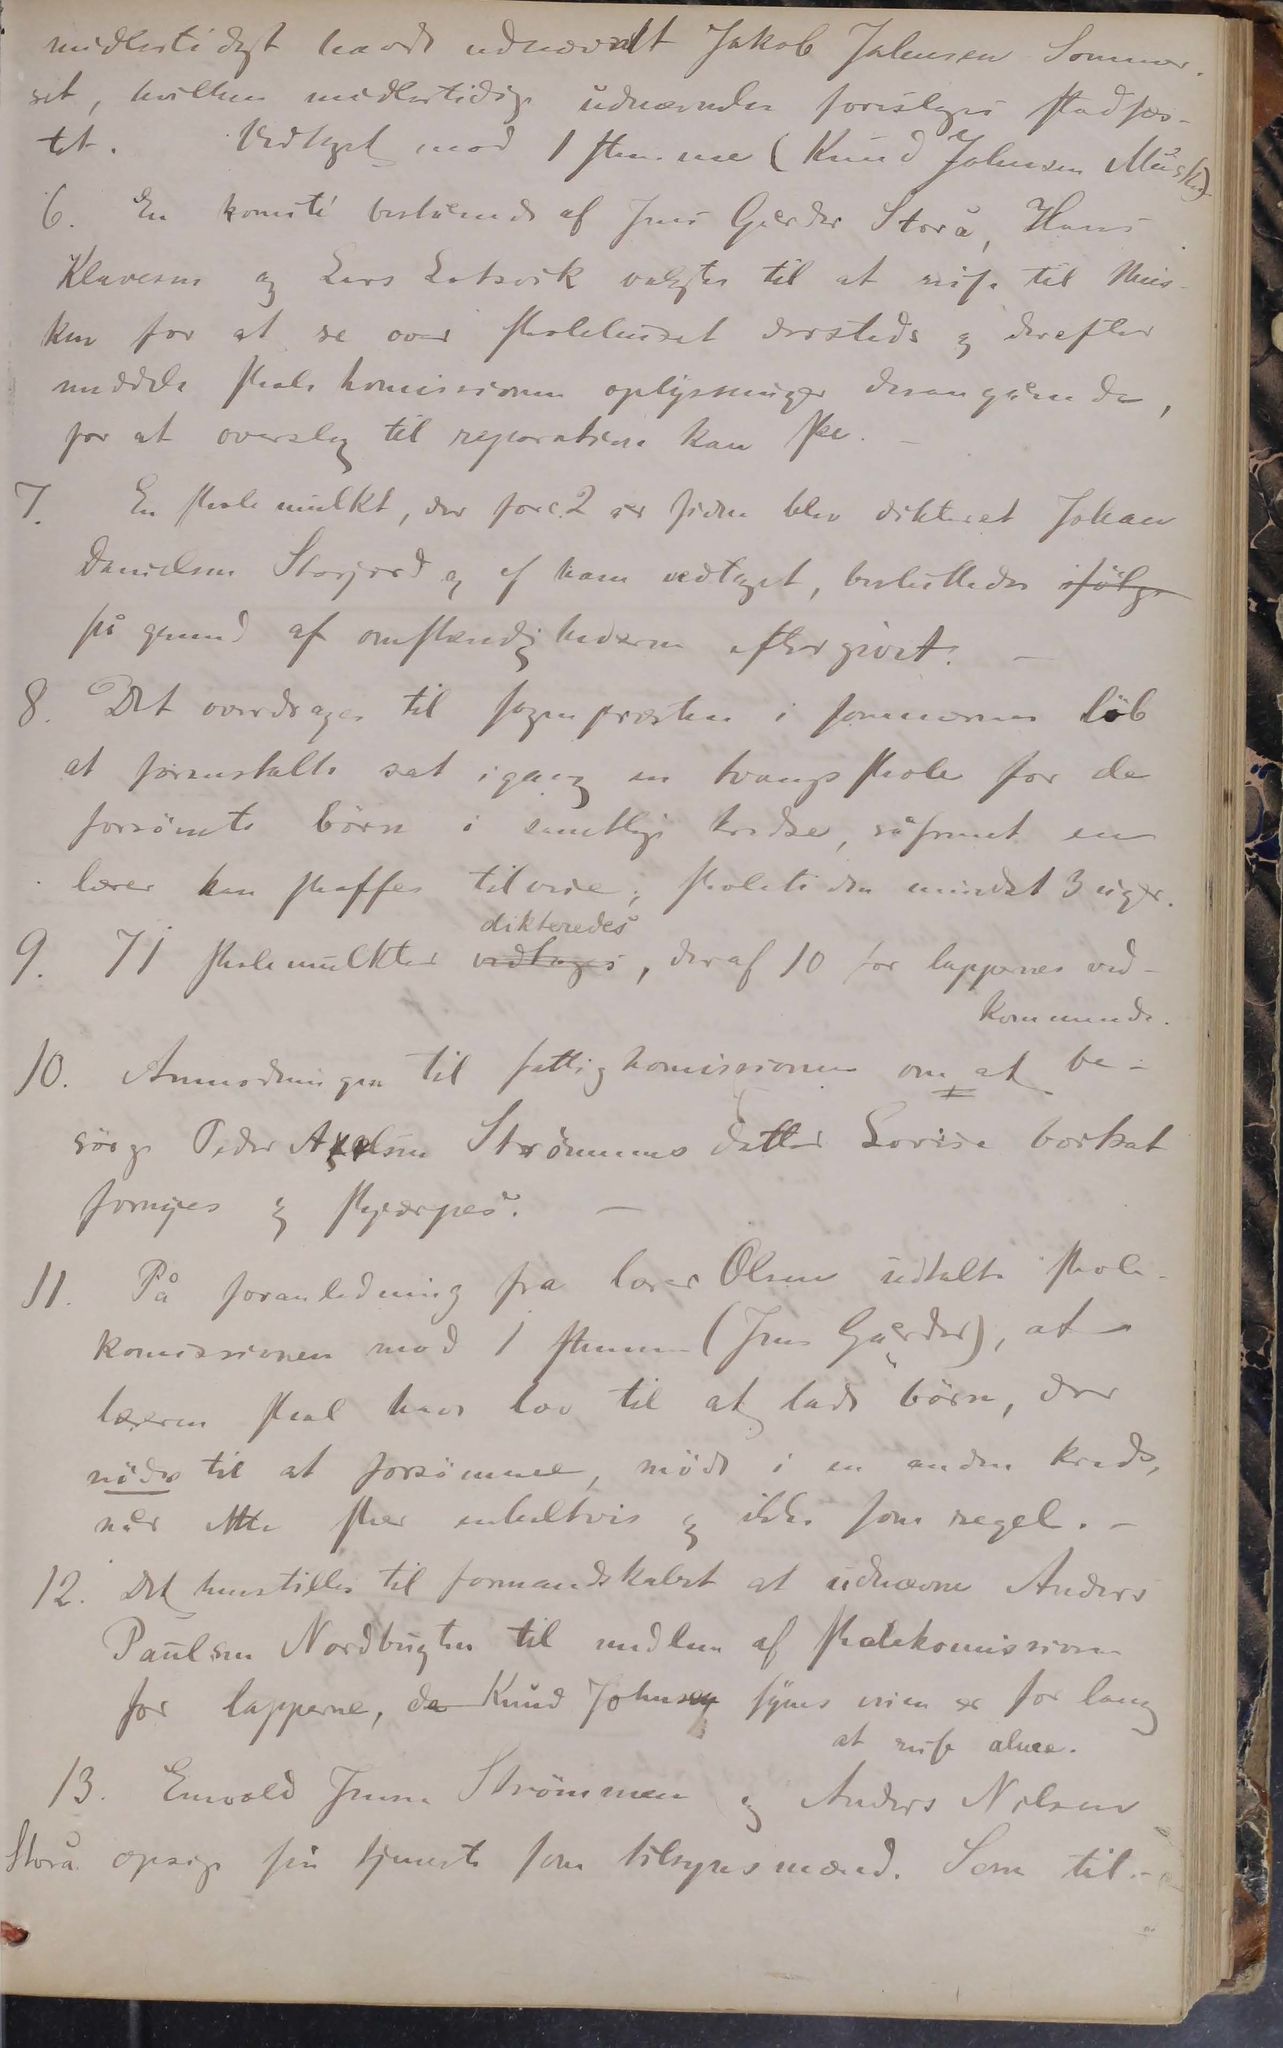 midlertidigt havde udnævnt Jakob Johnsen Sommer-
set, hvilken midlertidige udnævnelse foreslages stadfæs-
tet. Vedtaget mod 1 stemme (Knud Johnsen Musken)
6. En komité bestående af Jens Gjerdor Storå, Hans
Klavesen og Lars Lotsvik valgtes til at reise til Mus-
ken for at se over skolehuset dersteds og derefter
meddele skolekomissionen oplysninger desangående,
for at overslag til reparation kan ske. —
7. En skolemulkt, der for c. 2 år siden blev dikteret Johan
Danielsen Storjord og af ham vedtaget, besluttedes ifølge
på grund af omstændighederne eftergivet. —
8. Det overdrages til sognepræsten i sommerens löb
at foranstalte sat igang en tvangsskole for de
forsömte börn i samtlige kredse, såfremt en
lærer kan skaffes tilveie; skoletiden mindst 3 uger.
dikteredes
9. 71 skolemulkter vedtages, deraf 10 for lappernes ved-
kommende.
10. Anmodningen til fattigkomissionen om at be-
sörge Peder Axelsen Strömmens datter Lovise bortsat
fornyes og skjærpes. —
11. På foranledning fra lærer Olsen udtalte skole-
komissionen mod 1 stemme (Jens Gjærdor), at
læreren skal have lov til at lade börn, der
nödes til at forsömme, möde i en anden kreds,
når dette sker enkeltvis og ikke som regel. —
12. Det henstilles til formandskabet at udnævne Anders
Paulsen Nordbugten til medlem af skolekomissionen
for lapperne, da Knud Johnsen synes veien er for lang
at reise alene.
13. Enevold Jensen Strömmen og Anders Nilsen
Storå opsige sin tjeneste som tilsynsmænd. Som til-